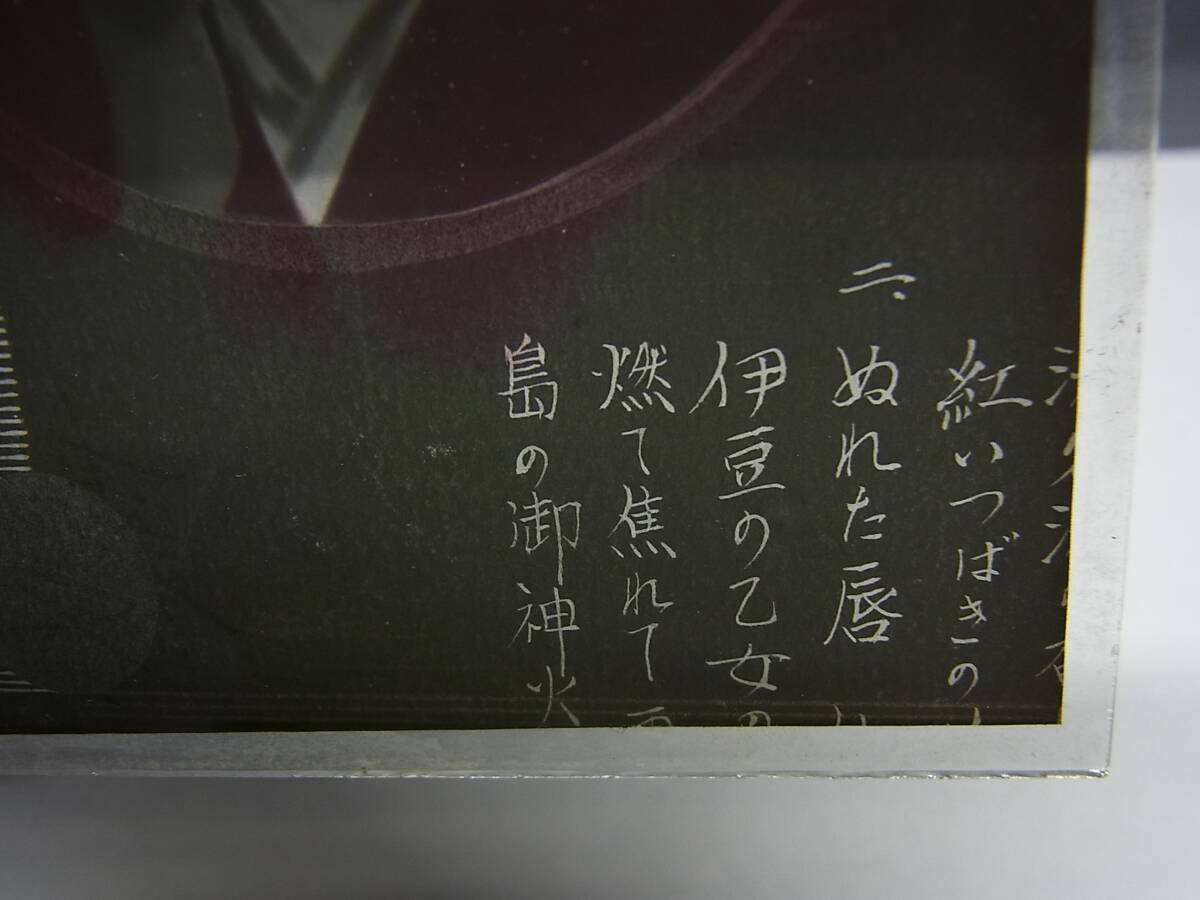 紅いつばきの
二、
ぬれた唇
伊豆の乙女の
燃て焦れて
島の御神火